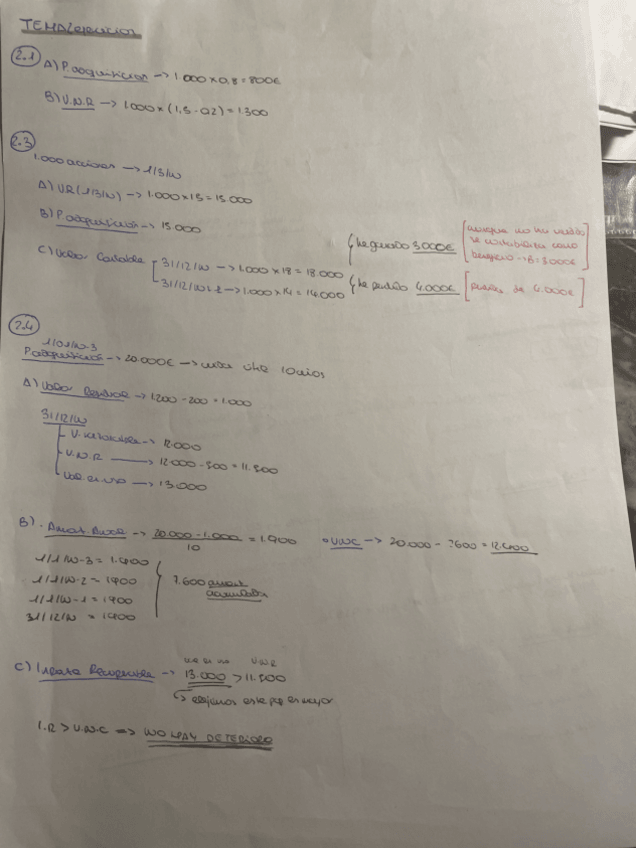 TEMA 2 ejercicios
2.1
A) P. adquisición -> 1.000 x 0,8 = 800€
B) V.N.R -> 1.000 x (1,5 - 0,2) = 1.300
2.3
1.000 acciones -> 1/3/N
A) VR (1/3/N) -> 1.000 x 15 = 15.000
B) P. adquisición -> 15.000
C) Valor Contable
31/12/N -> 1.000 x 18 = 18.000 { he ganado 3000€ [aunque no ha vendido se contabiliza como beneficio -> B: 3.000€]
31/12/N+1 -> 1.000 x 14 = 14.000 { he perdido 4.000€ [de 4.000€]
2.4
1/01/N-3
P. adquisición -> 20.000€ -> vida útil 10 años
A) Valor Residual -> 1.200 - 200 = 1.000
31/12/N
V. razonable -> 12.000
V.N.R -> 12.000 - 500 = 11.500
Valor en uso -> 13.000
B) Amort. Anual -> 20.000 - 1.000 / 10 = 1.900 VNC -> 20.000 - 7600 = 12.400
1/1/N-3 = 1.900
1/1/N-2 = 1900
1/1/N-1 = 1900
31/12/N = 1900
7.600 amort. acumulada
C) Importe Recuperable -> 13.000 > 11.500
valor en uso VNR
elegimos este pq es mayor
I.R > V.N.C => NO HAY DETERIORO